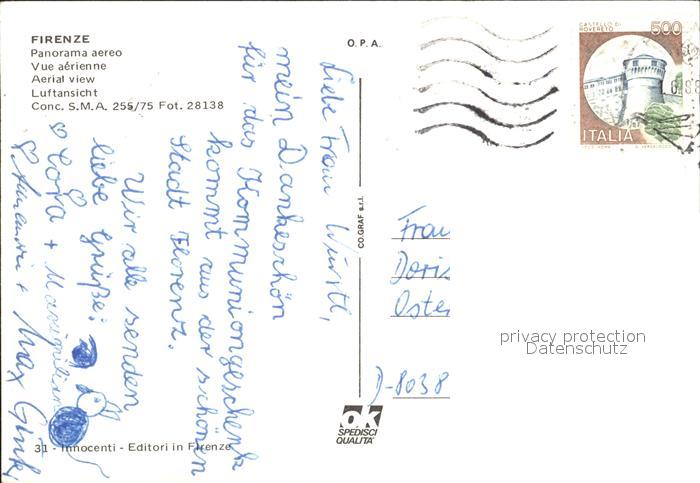 FIRENZE
Panorama aereo
Vue aérienne
Aerial view
Luftansicht
Conc. S.M.A. 255/75 Fot. 28138
O. P. A.
CASTELLO DI
ROVERETO
500
ITALIA
Liebe Frau Würstl,
mein Dankeschön
für das Kommuniongeschenk
kommt aus der schönen
Stadt Florenz.
Wir alle senden
liebe Grüße:
♡ Cora + Massimiliano
♡ + Max
CO.GRAF s.r.l.
Frau
Doris
Oster
D-8038
privacy protection
Datenschutz
ok
SPEDISCI
QUALITA'
31 - Innocenti - Editori in Firenze